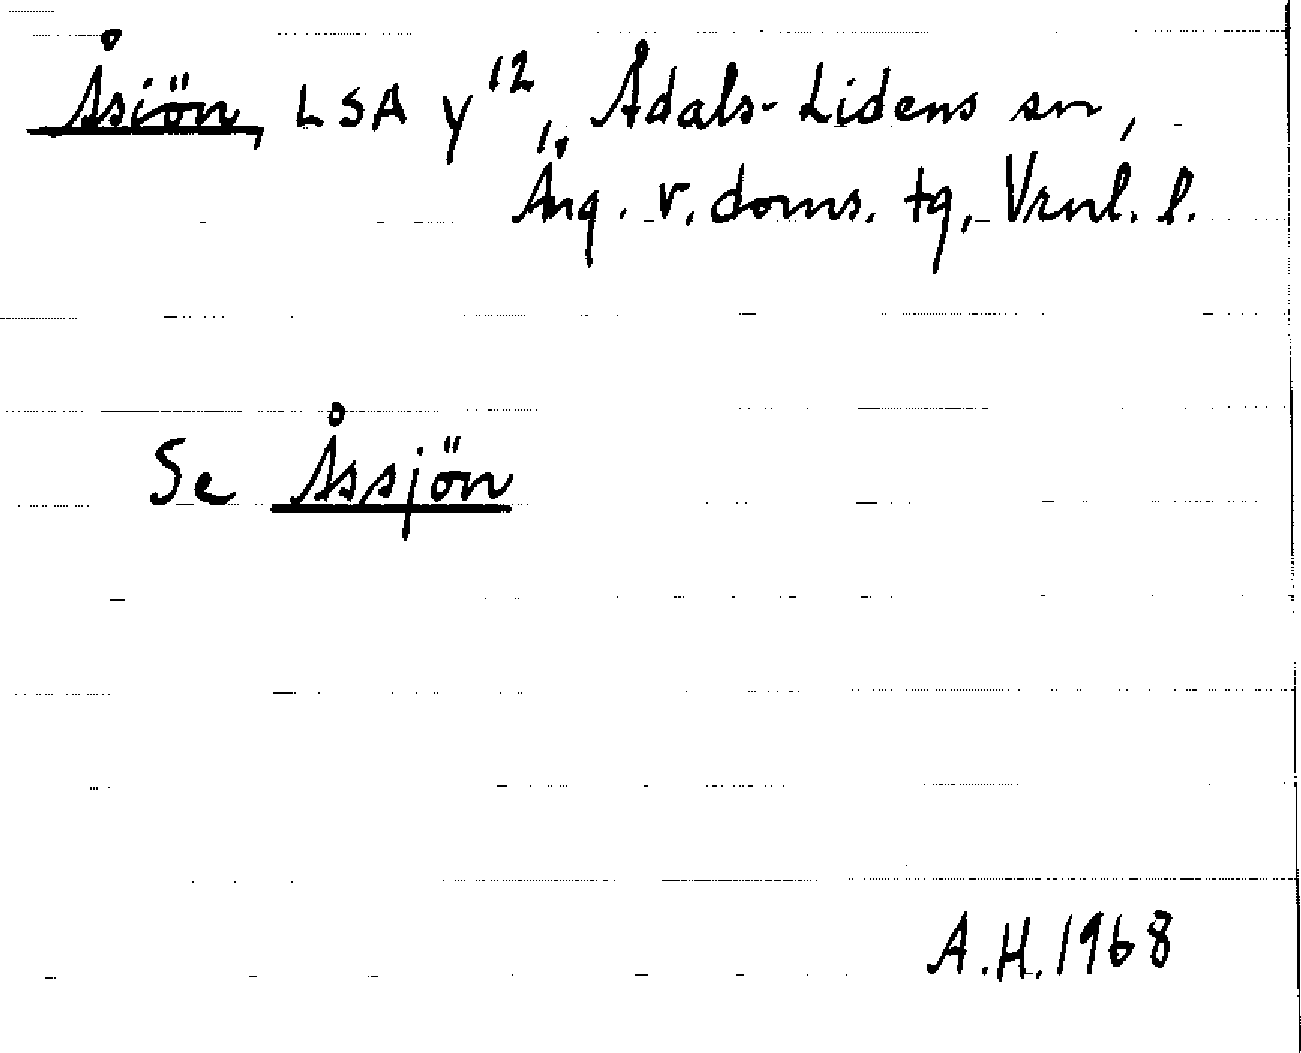 Åsiön, LSA y¹², Ådals-Lidens sn,
Äng. v. doms. tg, Vrnl. l.
Se Åssjön
A.H. 1968